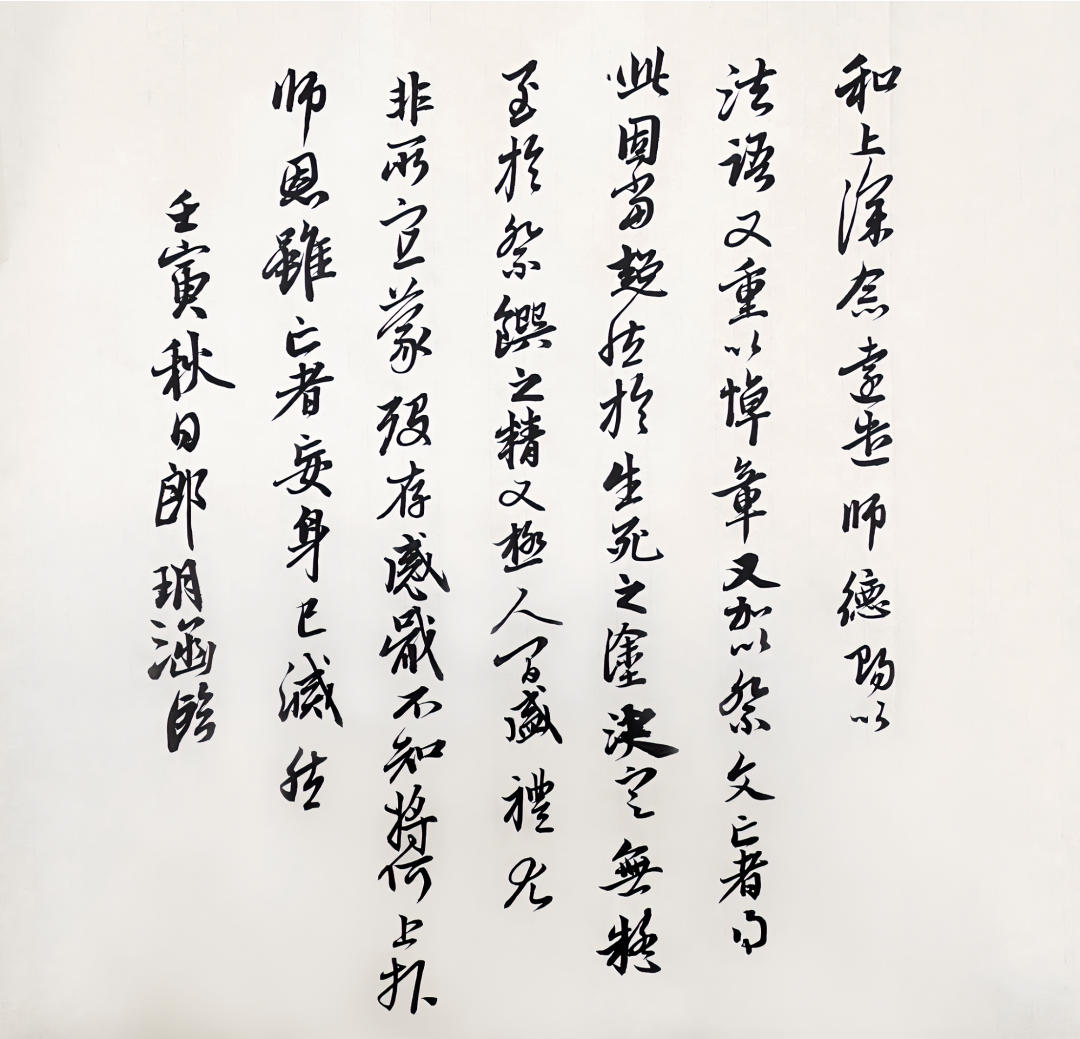 和上深念遠迭師德賜以
法語又重以悼章又加以祭文亡者得
此固當超然於生死之塗決定無疑
至於祭饌之精又極人間盛禮尤
非所宜蒙殁存感戢不知將何上報
師恩雖亡者妄身已滅然
壬寅秋日郎玥涵臨